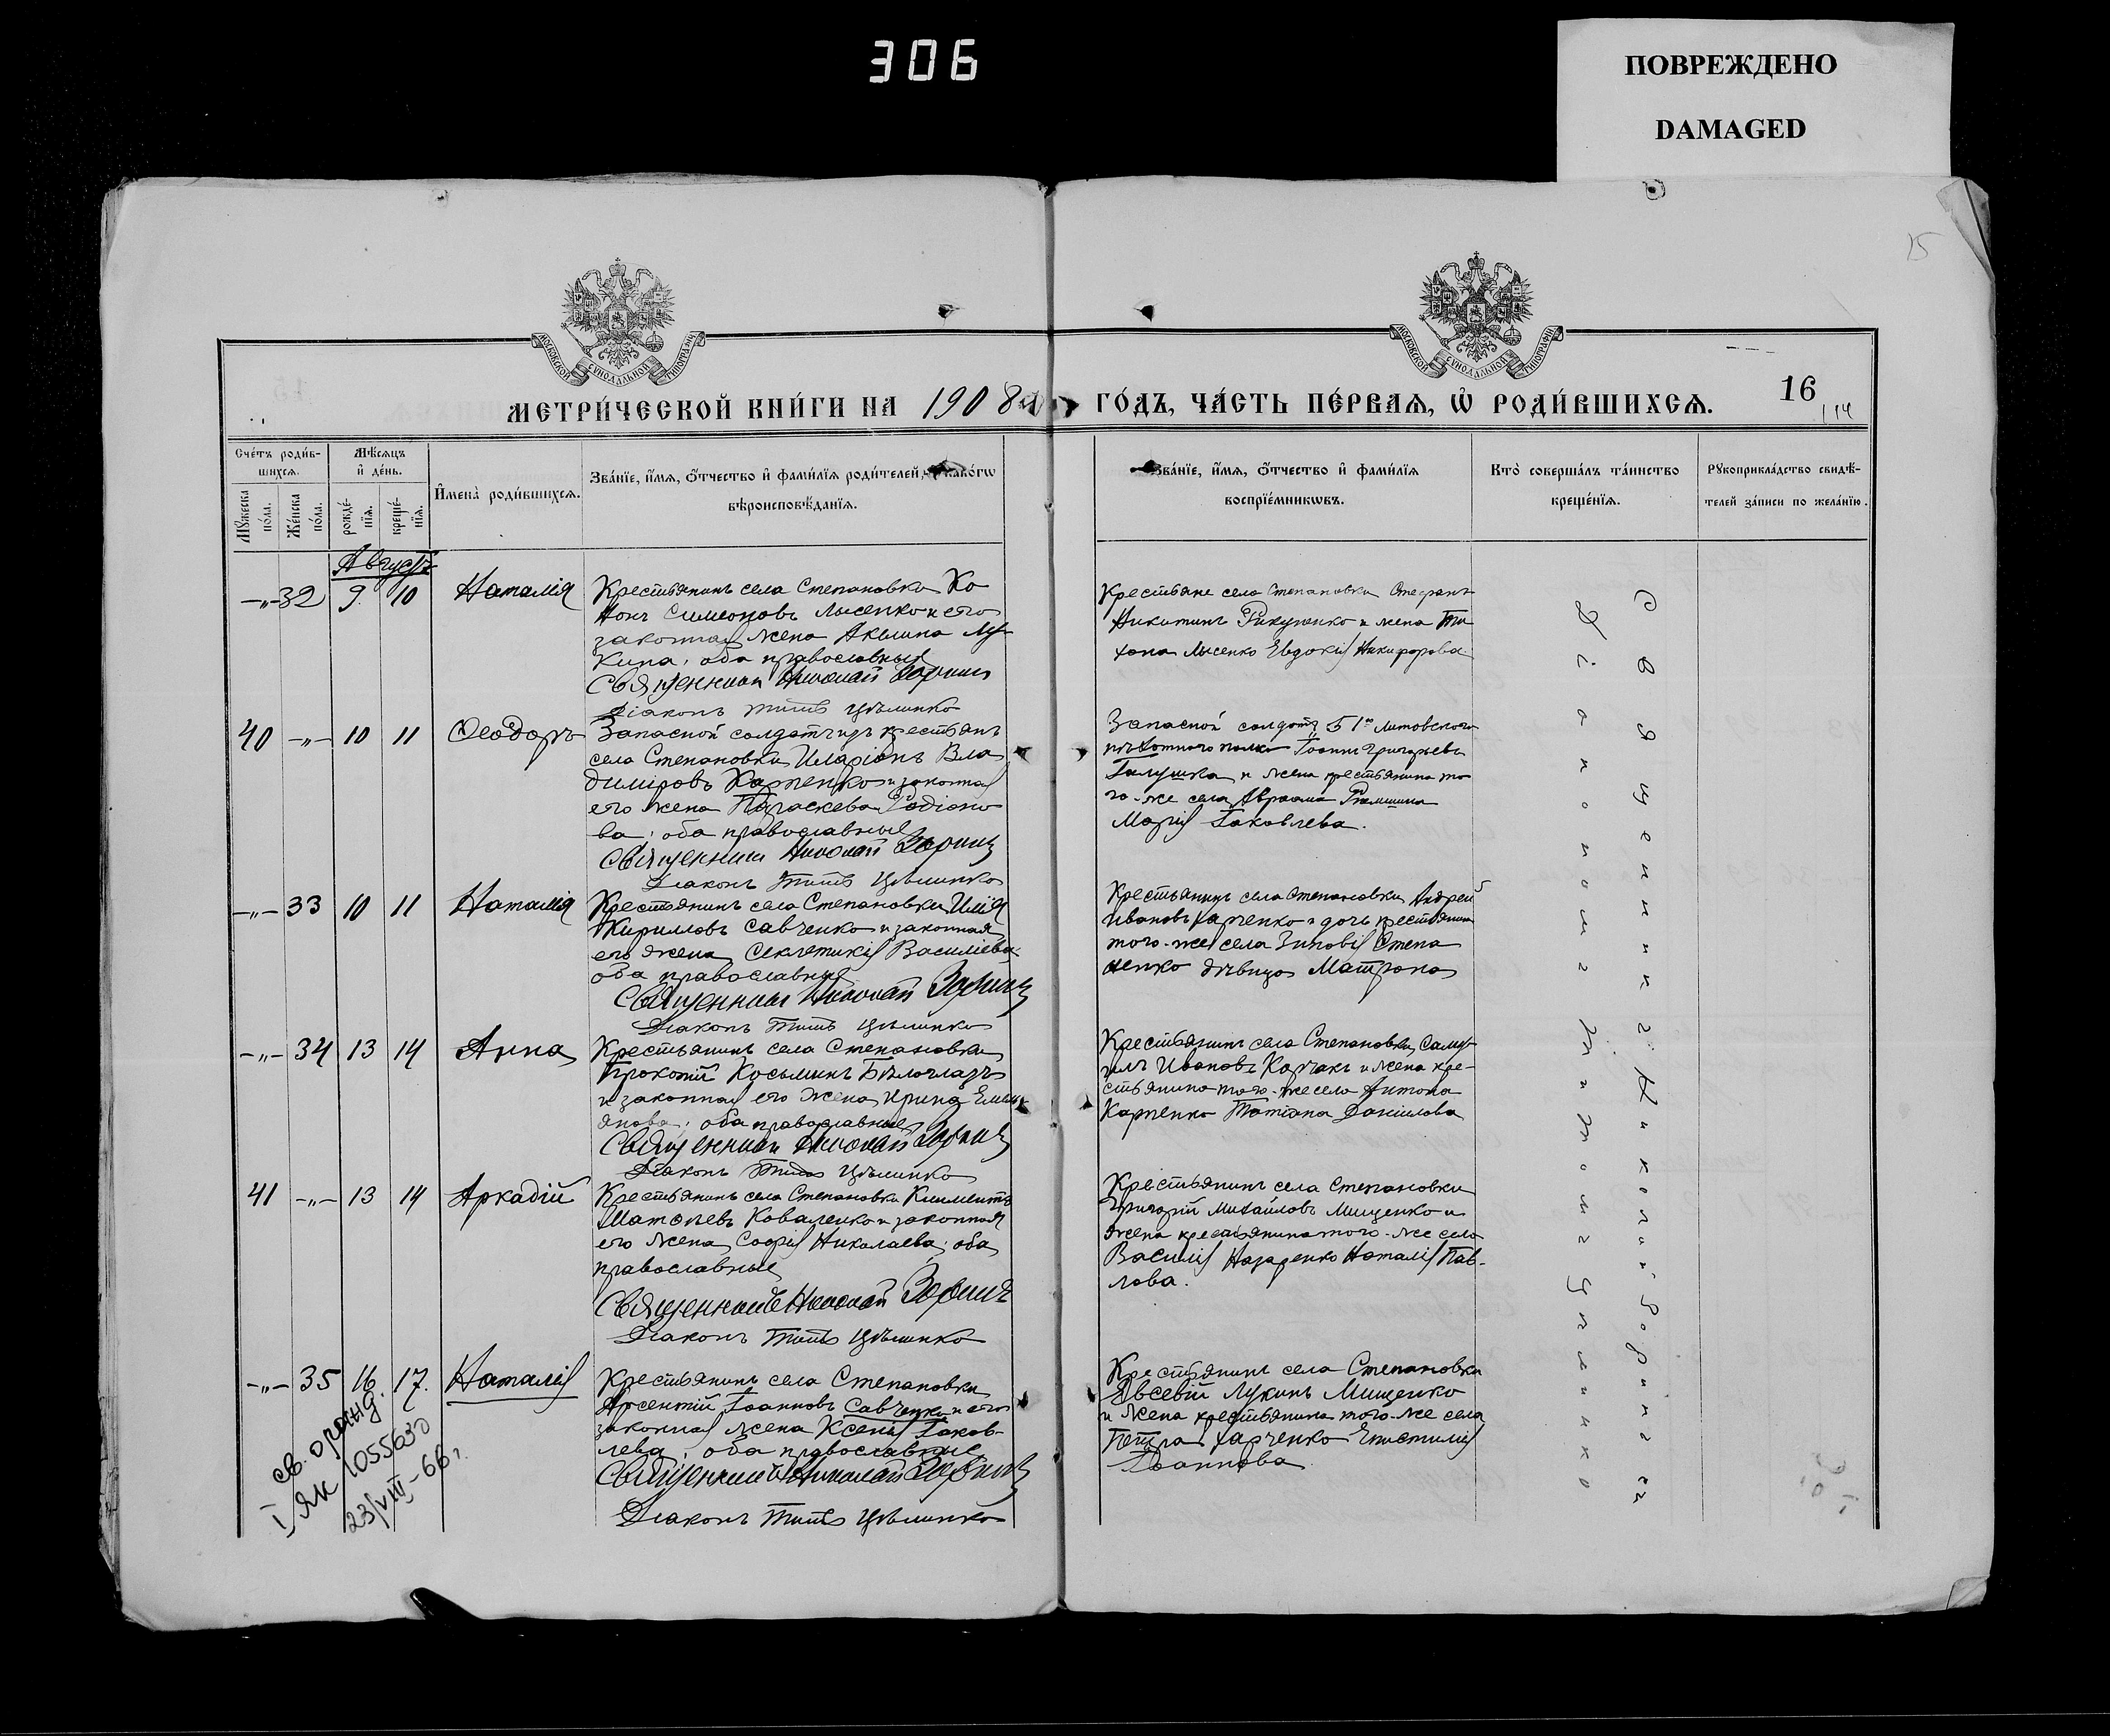 306
ПОВРЕЖДЕНО
DAMAGED
15
МОСКОВСКОЙ СѴНОДАЛЬНОЙ ТИПОГРАФІИ
МОСКОВСКОЙ СѴНОДАЛЬНОЙ ТИПОГРАФІИ
МЕТРИ́ЧЕСКОЙ КНИ́ГИ НА 1908
ГО́ДЪ, ЧА́СТЬ ПЕ́РВАѦ, Ѡ҆ РОДИ́ВШИХСѦ.
16
114
Сче́тъ роди́в-
шихсѧ.
Мѣ́сѧцъ
и҆ де́нь.
Мꙋ́жеска
по́ла.
Же́нска
по́ла.
рожде́-
нїѧ.
креще́-
нїѧ.
И҆мена̀ роди́вшихсѧ.
Зва́нїе, и҆́мѧ, ѻ҆́тчество и҆ фами́лїѧ роди́телей, и҆ како́гѡ
вѣроисповѣ́данїѧ.
Зва́нїе, и҆́мѧ, ѻ҆́тчество и҆ фами́лїѧ
воспрїе́мникѡвъ.
Кто̀ соверша́лъ та́инство
креще́нїѧ.
Рꙋкоприкла́дство свидѣ́-
телей за́писи по жела́нїю.
Августъ
-"- 32 9. 10 Наталія
Крестьянинъ села Степановки Ко
нонъ Симеоновъ Лысенко и его
законная жена Акилина Лу-
кина, оба православные
Священникъ Николай Зоринъ
Діаконъ Титъ Цѣлинко
Крестьяне села Степановки Стефанъ
Никитинъ и жена Ти
хона Лысенко Евдокія Никифорова
40 -"- 10 11 Ѳеодоръ
Запасной солдатъ изъ крестьянъ
села Степановки Иларіонъ Вла
диміровъ Карпенко и законная
его жена Параскева Родіоно
ва; оба православные
Священникъ Николай Зоринъ
Діаконъ Титъ Цѣлинко
Запасной солдатъ 51го Литовскаго
пѣхотнаго полка Іоаннъ Григорьевъ
Галушка и жена крестьянина то
го-же села Авраама
Марія Іаковлева.
-"- 33 10 11 Наталія
Крестьянинъ села Степановки Илія
Кирилловъ Савченко и законная
его жена Секлетикія Василіева
оба православные
Священникъ Николай Зоринъ
Діаконъ Титъ Цѣлинко
Крестьянинъ села Степановки Андрей
Ивановъ Харченко и дочь крестьянина
того-же села Зиновія Степа
ненко дѣвица Матрона
-"- 34 13 14 Анна
Крестьянинъ села Степановки
Прокопій Косьминъ Бѣлоглазъ
и законная его жена Ирина Емель
янова; оба православные
Священникъ Николай Зоринъ
Діаконъ Титъ Цѣлинко
Крестьянинъ села Степановки Саму-
илъ Ивановъ Корчакъ и жена кре-
стьянина того-же села Антона
Карпенко Татіана Даніилова
41 -"- 13 14 Аркадій
Крестьянинъ села Степановки Климентъ
Коваленко и законная
его жена Софія Николаева; оба
православные
Священникъ Николай Зоринъ
Діаконъ Титъ Цѣлинко
Крестьянинъ села Степановки
Григорій Михайловъ Мищенко и
жена крестьянина того-же села
Василія Назаренко Наталія Пав-
лова.
-"- 35 16 17. Наталія
Крестьянинъ села Степановки
Арсентій Іоанновъ Савченко и его
законная жена Ксенія Іаков-
лева, оба православные
Священникъ Николай Зоринъ
Діаконъ Титъ Цѣлинко
Крестьянинъ села Степановки
Евсевій Лукинъ Мищенко
и жена крестьянина того-же села
Петра Харченко Епистимія
Іоаннова
Священникъ Николай Зоринъ съ
Діакономъ Титомъ Цѣлинко
I ЯК 1055630
23/VIII-66г.